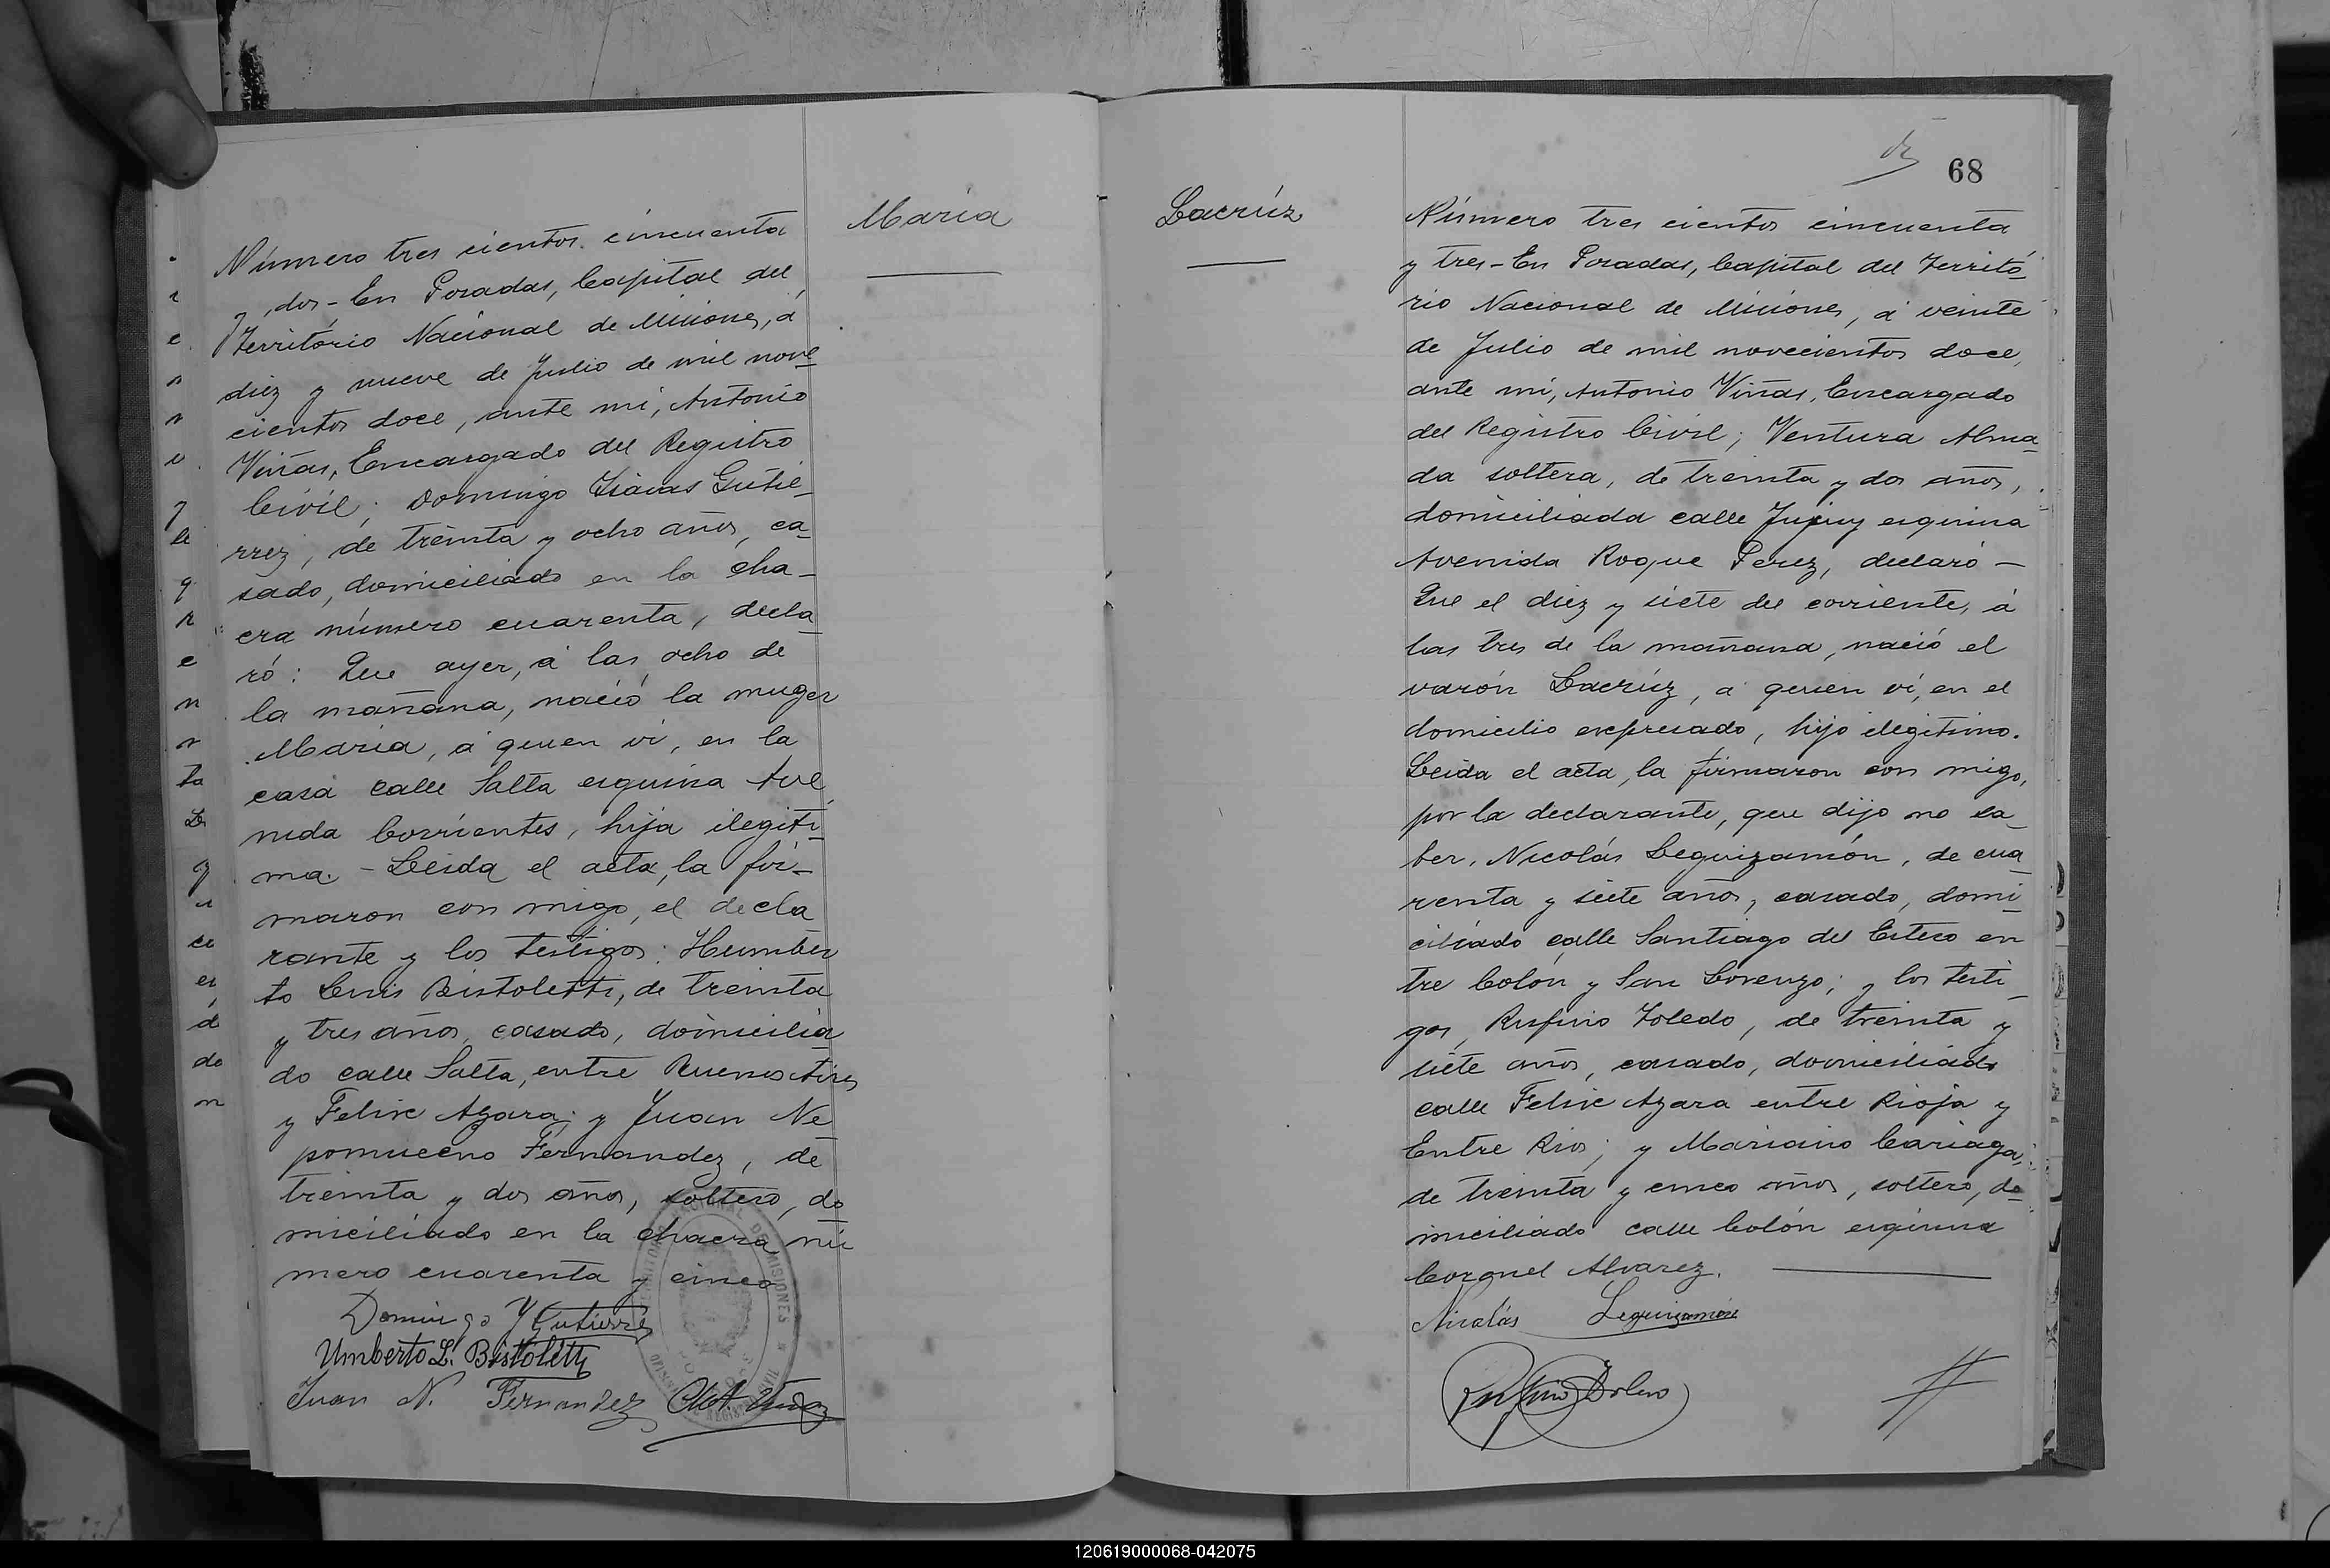 María
Número tres cientos cincuenta
y dos- En Posadas, Capital del
Território Nacional de Misiones, á
diez y nueve de Julio de mil nove
cientos doce, ante mí, Antonio
Viñas, Encargado del Registro
Civil; Domingo Isaías Gutié-
rrez, de treinta y ocho años, ca-
sado, domiciliado en la cha-
cra número cuarenta, decla-
ró: Que ayer, á las ocho de
la mañana, nació la muger
María, á quien ví, en la
casa calle Salta esquina Ave
nida Corrientes, hija ilegíti-
ma. - Leida el acta, la fir-
maron con migo, el decla
rante y los testigos: Humber
to Luis Bistoletti, de treinta
y tres años, casado, domicilia
do calle Salta, entre Buenos Aires
y Felix Azara; y Juan Ne
pomuceno Fernandez, de
treinta y dos años, soltero, do
miciliado en la chacra nú
mero cuarenta y cinco
Domingo Y Gutierrez
Umberto L. Bistoletti
Juan N. Fernandez Ant. Viñas
68
Lacrúz
Número tres cientos cincuenta
y tres- En Posadas, Capital del Territó
rio Nacional de Misiones, á veinte
de Julio de mil novecientos doce,
ante mí, Antonio Viñas, Encargado
del Registro Civil; Ventura Alma-
da soltera, de treinta y dos años,
domiciliada calle Jujuy esquina
Avenida Roque Perez, declaró-
Que el diez y siete del corriente, á
las tres de la mañana, nació el
varón Lacrúz, á quien ví, en el
domicilio expresado, hijo ilegítimo.
Leida el acta, la firmaron con migo,
por la declarante, que dijo no sa-
ber, Nicolás Leguizamón, de cua
renta y siete años, casado, domi-
ciliado calle Santiago del Estero en
tre Colón y San Lorenzo; y los testi-
gos, Rufino Toledo, de treinta y
siete años, casado, domiciliado
calle Felix Azara entre Rioja y
Entre Rios; y Mariano Cariaga,
de treinta y cinco años, soltero, do-
miciliado calle Colón esquina
Coronel Alvarez.
Nicolás Leguizamón
120619000068-042075